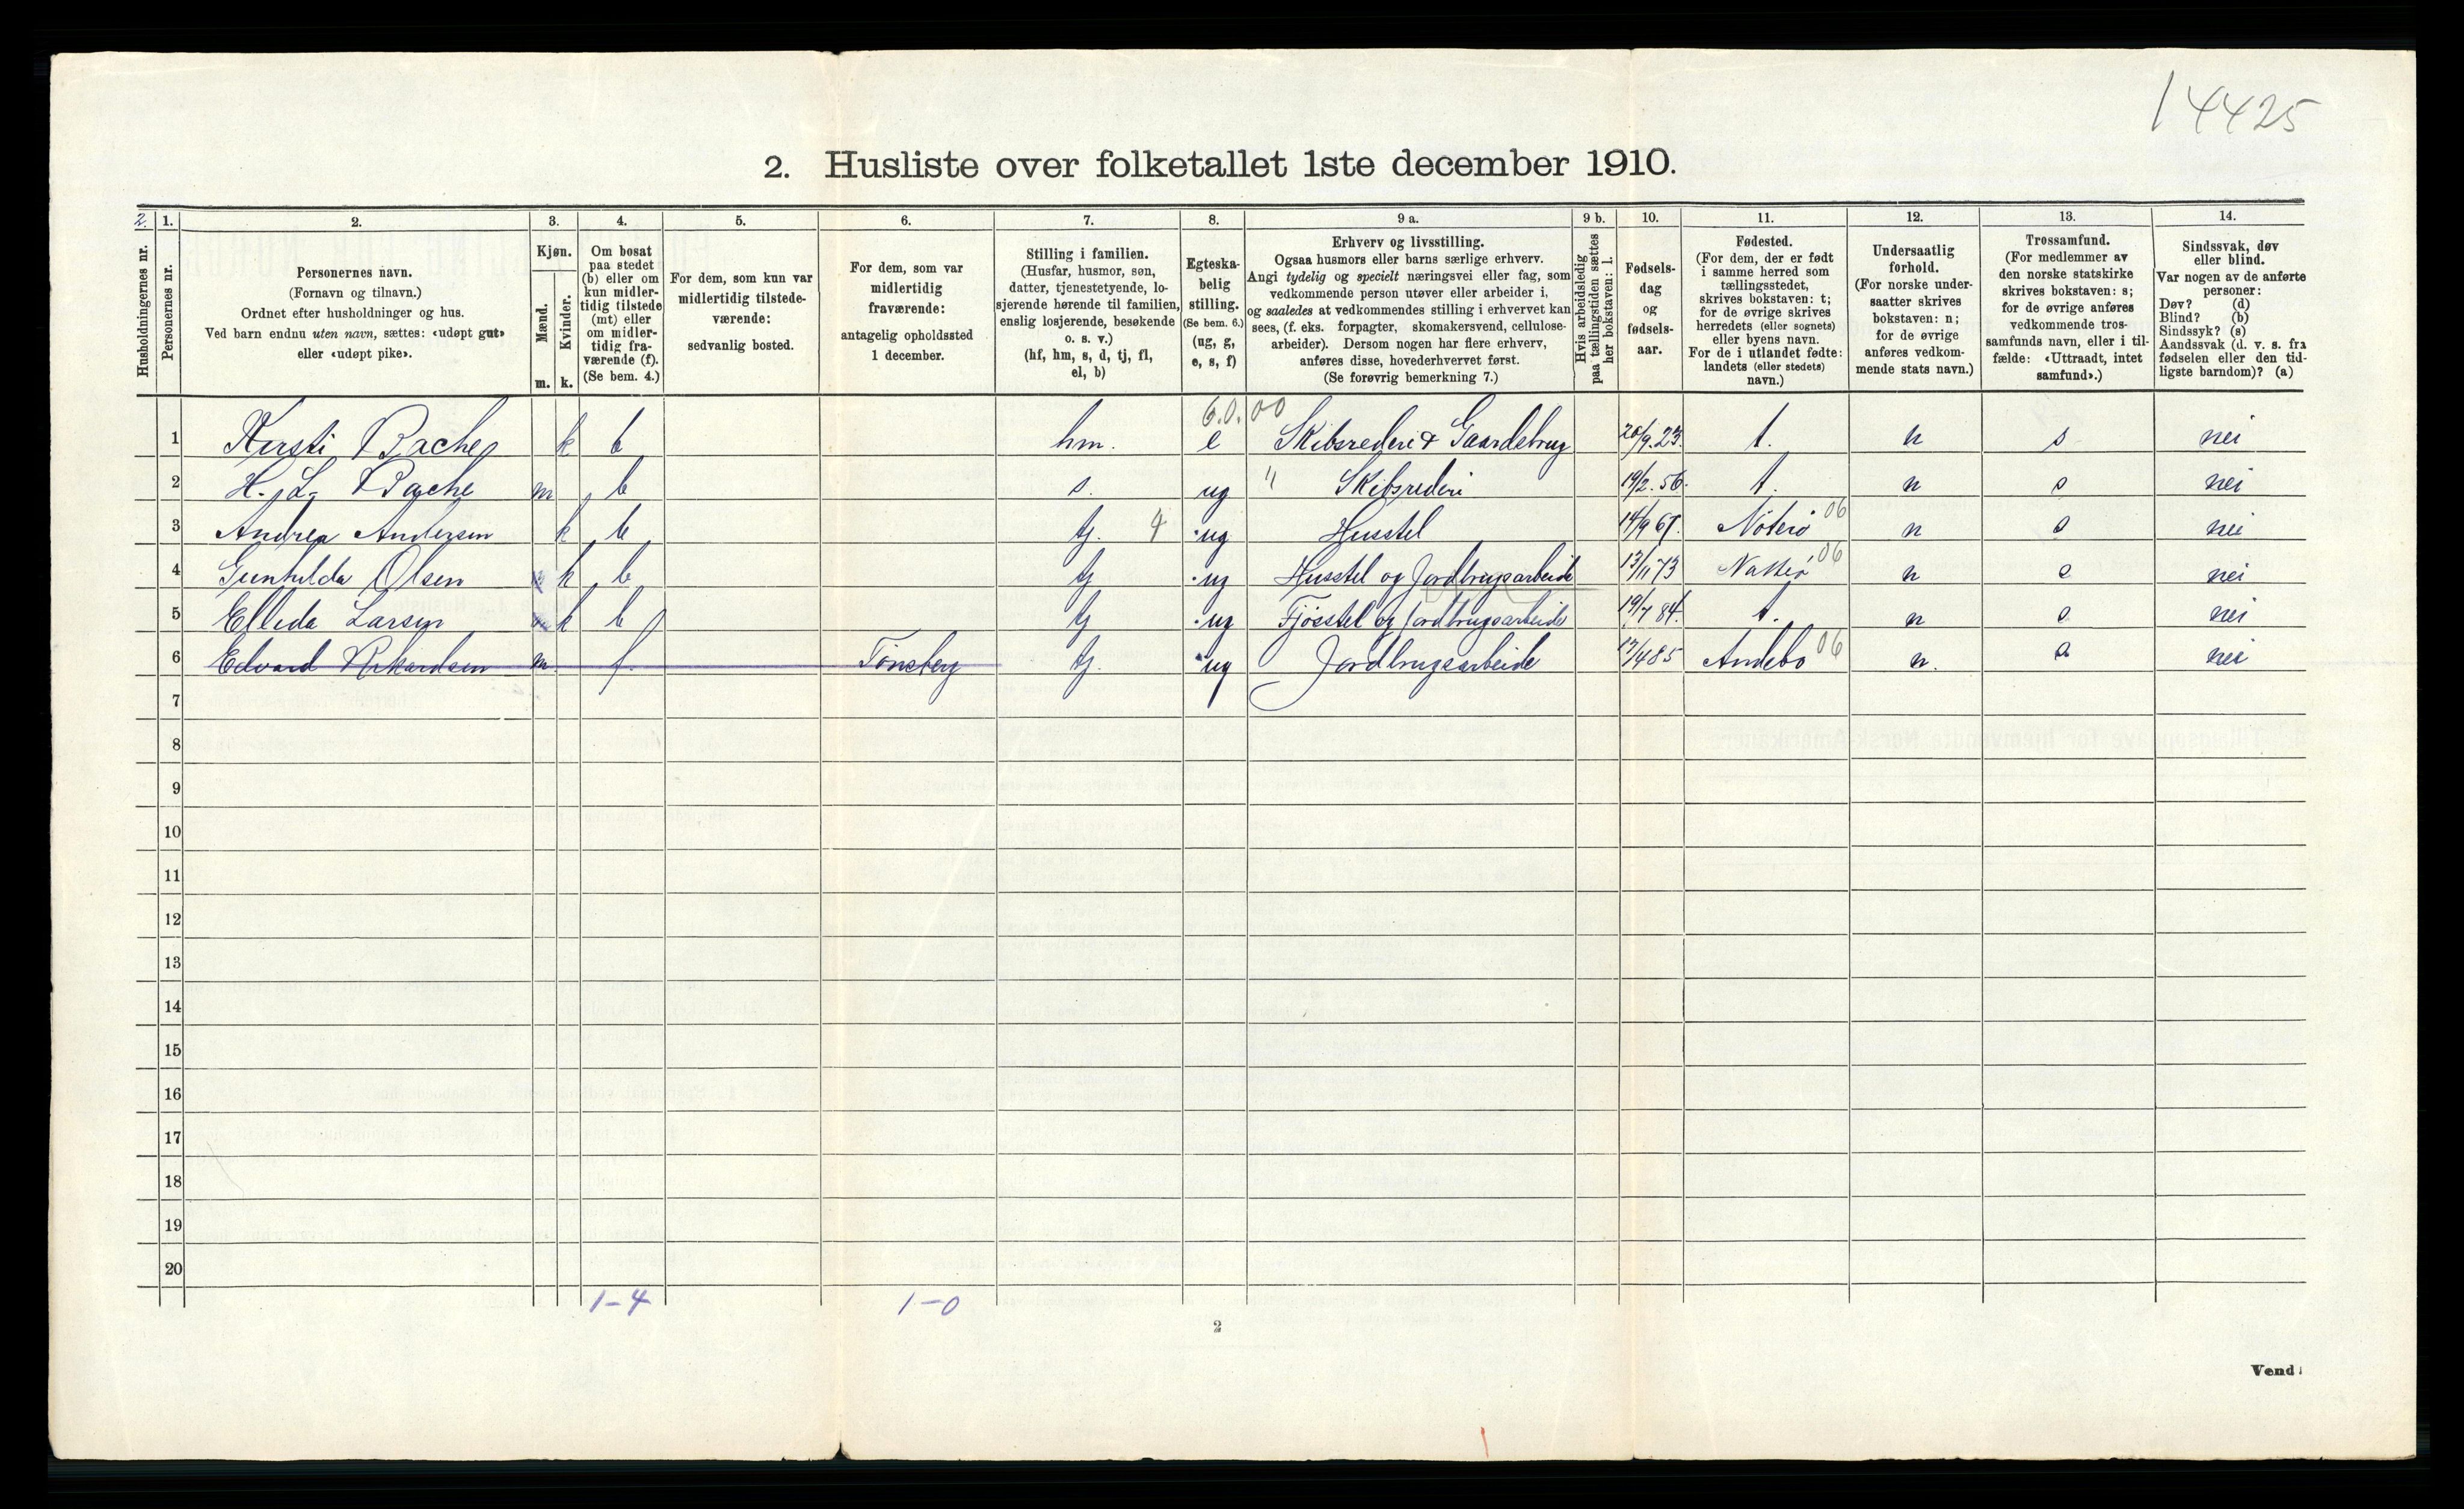 14425
2. Husliste over folketallet 1ste december 1910.
2. 1. 2. 3. 4. 5. 6. 7. 8. 9 a. 9 b. 10. 11. 12. 13. 14.
Husholdningernes nr.
Personernes nr.
Personernes navn.
(Fornavn og tilnavn.)
Ordnet efter husholdninger og hus.
Ved barn endnu uten navn, sættes: «udøpt gut»
eller «udøpt pike».
Kjøn.
Mænd.
Kvinder.
m. k.
Om bosat
paa stedet
(b) eller om
kun midler-
tidig tilstede
(mt) eller
om midler-
tidig fra-
værende (f).
(Se bem. 4.)
For dem, som kun var
midlertidig tilstede-
værende:
sedvanlig bosted.
For dem, som var
midlertidig
fraværende:
antagelig opholdssted
1 december.
Stilling i familien.
(Husfar, husmor, søn,
datter, tjenestetyende, lo-
sjerende hørende til familien,
enslig losjerende, besøkende
o. s. v.)
(hf, hm, s, d, tj, fl,
el, b)
Egteska-
belig
stilling.
(Se bem. 6.)
(ug, g,
e, s, f)
Erhverv og livsstilling.
Ogsaa husmors eller barns særlige erhverv.
Angi tydelig og specielt næringsvei eller fag, som
vedkommende person utøver eller arbeider i,
og saaledes at vedkommendes stilling i erhvervet kan
sees, (f. eks. forpagter, skomakersvend, cellulose-
arbeider). Dersom nogen har flere erhverv,
anføres disse, hovederhvervet først.
(Se forøvrig bemerkning 7.)
Hvis arbeidsledig
paa tællingstiden sættes
her bokstaven: l.
Fødsels-
dag
og
fødsels-
aar.
Fødested.
(For dem, der er født
i samme herred som
tællingsstedet,
skrives bokstaven: t;
for de øvrige skrives
herredets (eller sognets)
eller byens navn.
For de i utlandet fødte:
landets (eller stedets)
navn.)
Undersaatlig
forhold.
(For norske under-
saatter skrives
bokstaven: n;
for de øvrige
anføres vedkom-
mende stats navn.)
Trossamfund.
(For medlemmer av
den norske statskirke
skrives bokstaven: s;
for de øvrige anføres
vedkommende tros-
samfunds navn, eller i til-
fælde: «Uttraadt, intet
samfund».)
Sindssvak, døv
eller blind.
Var nogen av de anførte
personer:
Døv? (d)
Blind? (b)
Sindssyk? (s)
Aandssvak (d. v. s. fra
fødselen eller den tid-
ligste barndom)? (a)
6.0.00
1 Kersti Bache k b hm. e Skibsrederi & Gaardsbrug 20/9.23. t. n s nei
2 H. L. Bache m b s. ug " Skibsrederi 19/2.56. t. n s nei
3 Andrea Andersen k b tj. 4 ug Husstel 14/9 67. Nøterø 06 n s nei
4 Gunhilda Olsen k b tj ug Husstel og Jordbrugsarbeide 13/11 73 Nøtterø 06 n s nei
5 Elleda Larsen k b tj ug Fjøsstel og Jordbrugsarbeide 19/7 84. t. n s nei
6 Edvard Rikardsen m. f. Tønsberg tj. ug Jordbrugsarbeide 17/4 85 Andebo 06 n. s nei
7
8
9
10
11
12
13
14
15
16
17
18
19
20
1-4 1-0
2
Vend!